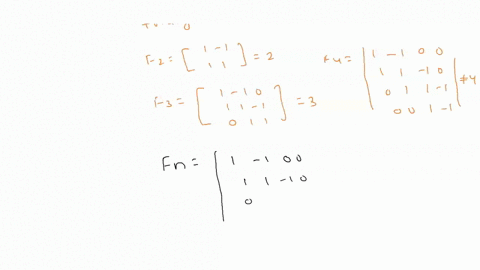 F2 = [ 1 -1
1 1 ] = 2
F3 = [ 1 -1 0
1 1 -1
0 1 1 ] = 3
*4 = | 1 -1 0 0
1 1 -1 0
0 1 1 -1
0 0 1 -1 | *4
Fn = | 1 -1 0 0
1 1 -1 0
0